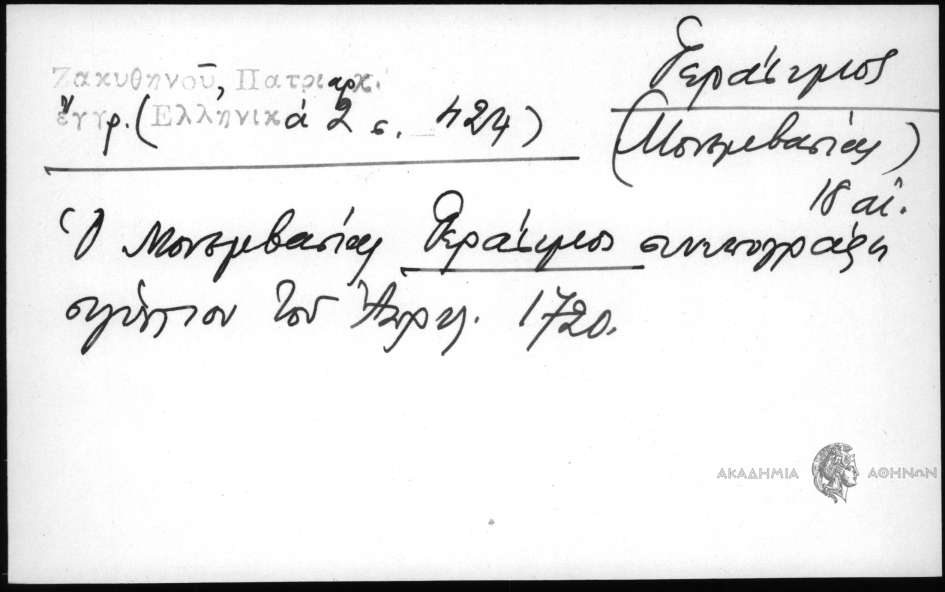 Ζακυθηνοῦ, Πατριαρχ.
ἔγγρ. (Ἑλληνικά 2 σ. 424)
Γεράσιμος
(Μονεμβασίας)
18 αἰ.
Ὁ Μονεμβασίας Γεράσιμος συνυπογράφει
σιγίλλιον τοῦ Ἀπρ. 1720.
ΑΚΑΔΗΜΙΑ ΑΘΗΝΩΝ